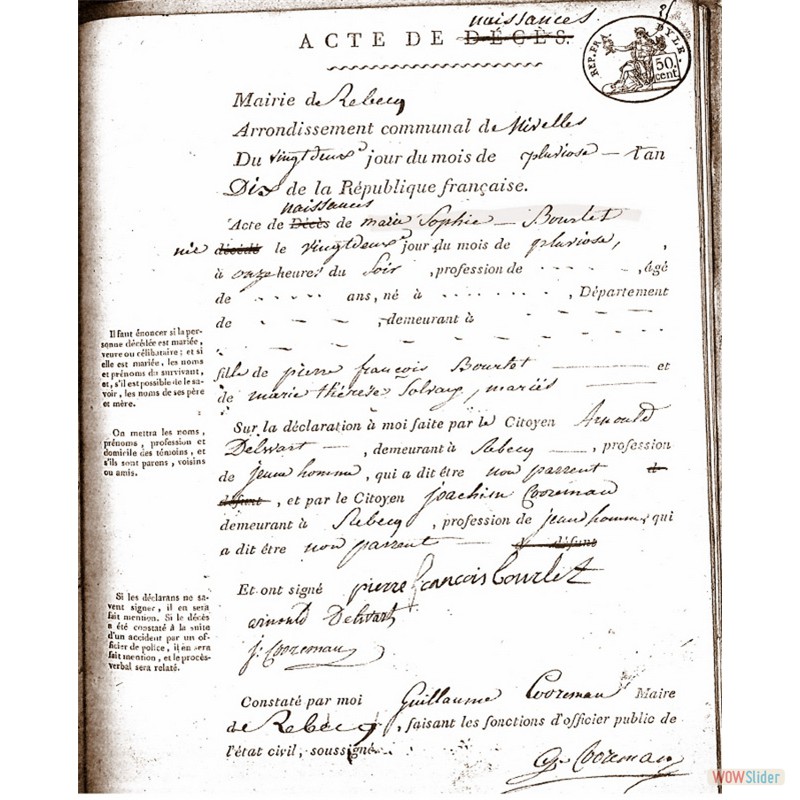 naissances
ACTE DE DÉCÈS.
REP. FRA.
DYLE
50. cent
Mairie de Rebecq
Arrondissement communal de Nivelles
Du vingt deux jour du mois de pluviose — l'an
Dix de la République française.
naissances
Acte de Décès de marie Sophie — Bourlet
née décédé le vingt deux jour du mois de pluviose,
à onze heures du Soir , profession de - - - - , âgé
de - - - - - ans, né à - - - - - - - , Département
de - - - , demeurant à
Il faut énoncer si la per-
sonne décédée est mariée,
veuve ou célibataire; et si
elle est mariée, les noms
et prénoms du survivant,
et, s'il est possible de le sa-
voir, les noms de ses père
et mère.
fille de pierre françois Bourlet — et
de marie thérèse Solvay, mariés —
On mettra les noms,
prénoms, profession et
domicile des témoins, et
s'ils sont parens, voisins
ou amis.
Sur la déclaration à moi faite par le Citoyen Arnould
Delwart — , demeurant à Rebecq — , profession
de jeune homme, qui a dit être non parrent d
défunt , et par le Citoyen joachim Cooreman
demeurant à Rebecq , profession de jeun homme, qui
a dit être non parrent — d défunt
Si les déclarans ne sa-
vent signer, il en sera
fait mention. Si le décès
a été constaté à la suite
d'un accident par un of-
ficier de police, il en sera
fait mention, et le procès-
verbal sera relaté.
Et ont signé pierre françois bourlet
arnould Delwart
j: Cooreman
Constaté par moi Guillaume Cooreman Maire
de Rebecq , faisant les fonctions d'officier public de
l'état civil, soussigné.
G. Cooreman
WOWSlider